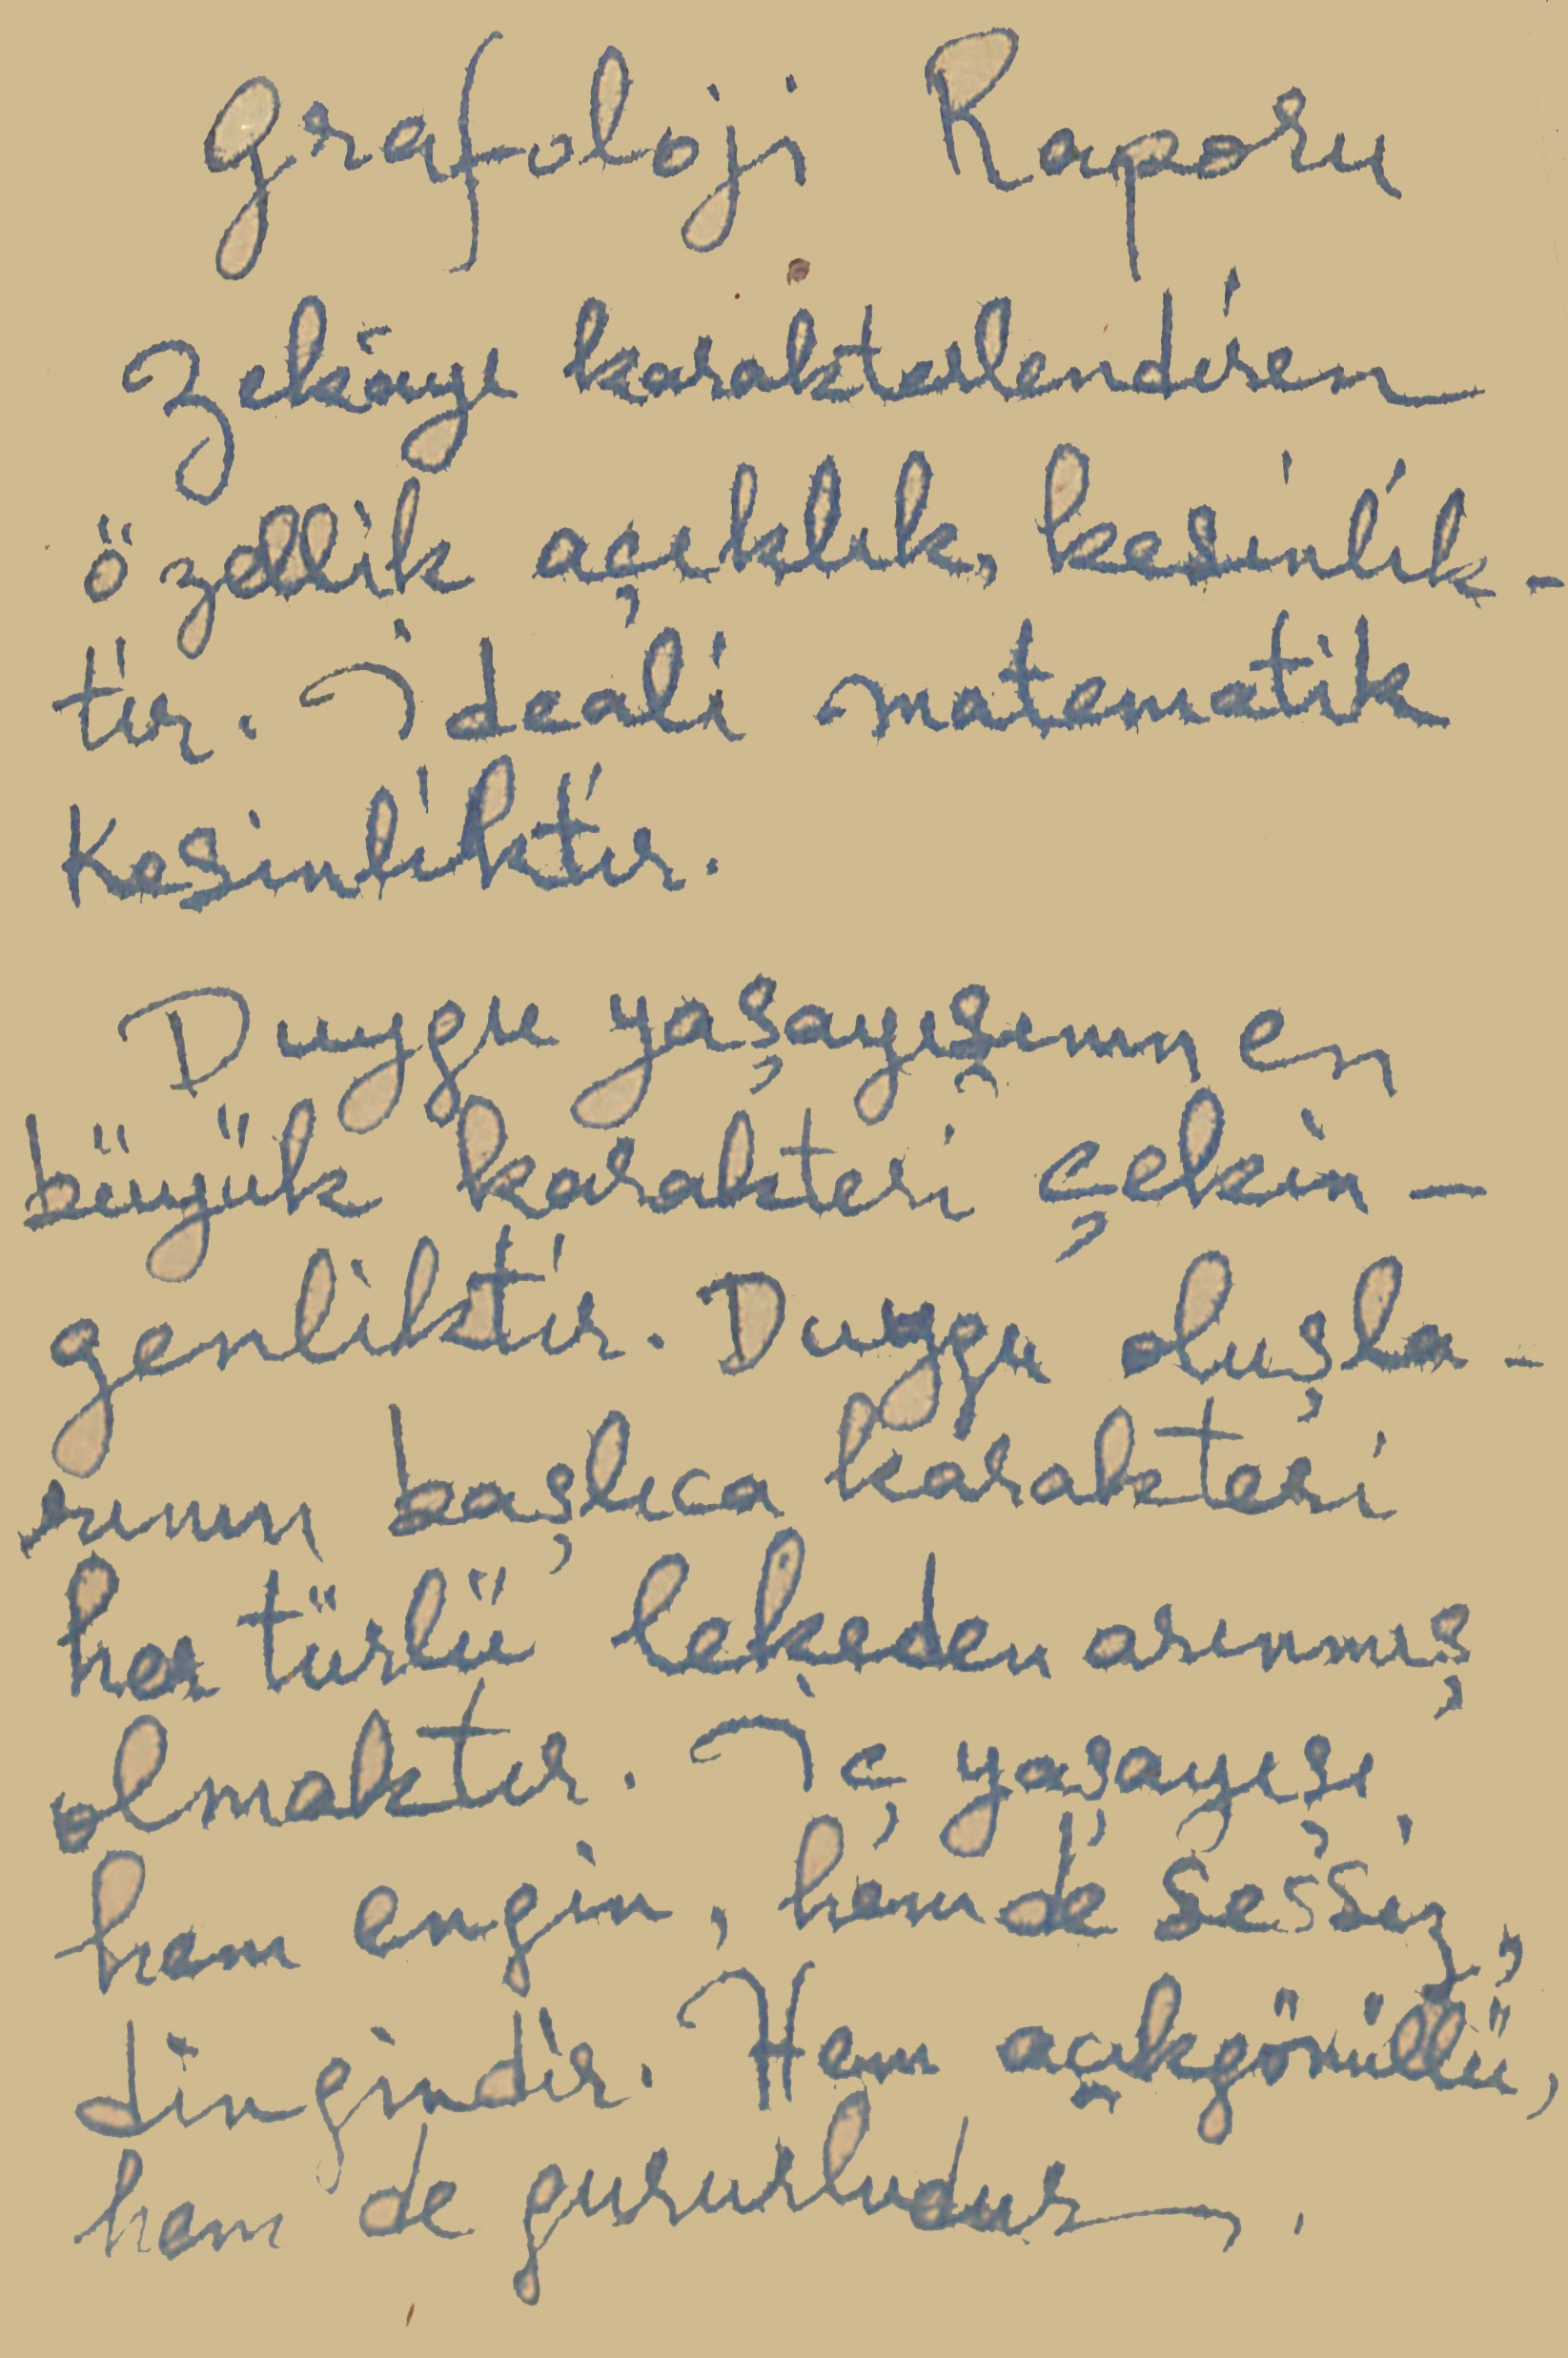 Grafoloji Raporu
Zekâyı karakterlendiren
özellik açıklık, kesinlik-
tir. İdeali matematik
Kesinliktir.
Duygu yaşayışının en
büyük karakteri çekin-
genliktir. Duygu oluşla-
rının başlıca karakteri
her türlü lekeden arınmış
olmaktır. İç yaşayışı
hem engin, hem de sessiz,
dingindir. Hem açıkgönüllü,
hem de gururludur.